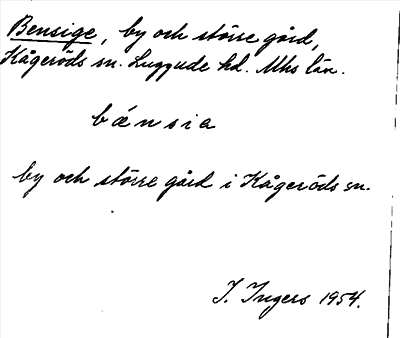 Bensige, by och större gård,
Kågeröds sn. Luggude hd. Mhs län.
bǽnsia
by och större gård i Kågeröds sn.
I. Ingers 1954.